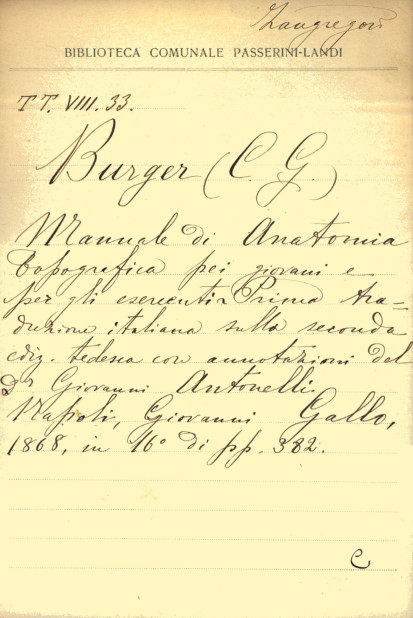 Zangregori
BIBLIOTECA COMUNALE PASSERINI-LANDI
TT. VIII. 33.
Burger (C. G.)
Manuale di Anatomia
topografica pei giovani e
per gli esercenti. Prima tra=
duzione italiana sulla seconda
ediz. tedesca con annotazioni del
Dr Giovanni Antonelli
Napoli, Giovanni Gallo,
1868, in 16° di pp. 382.
C